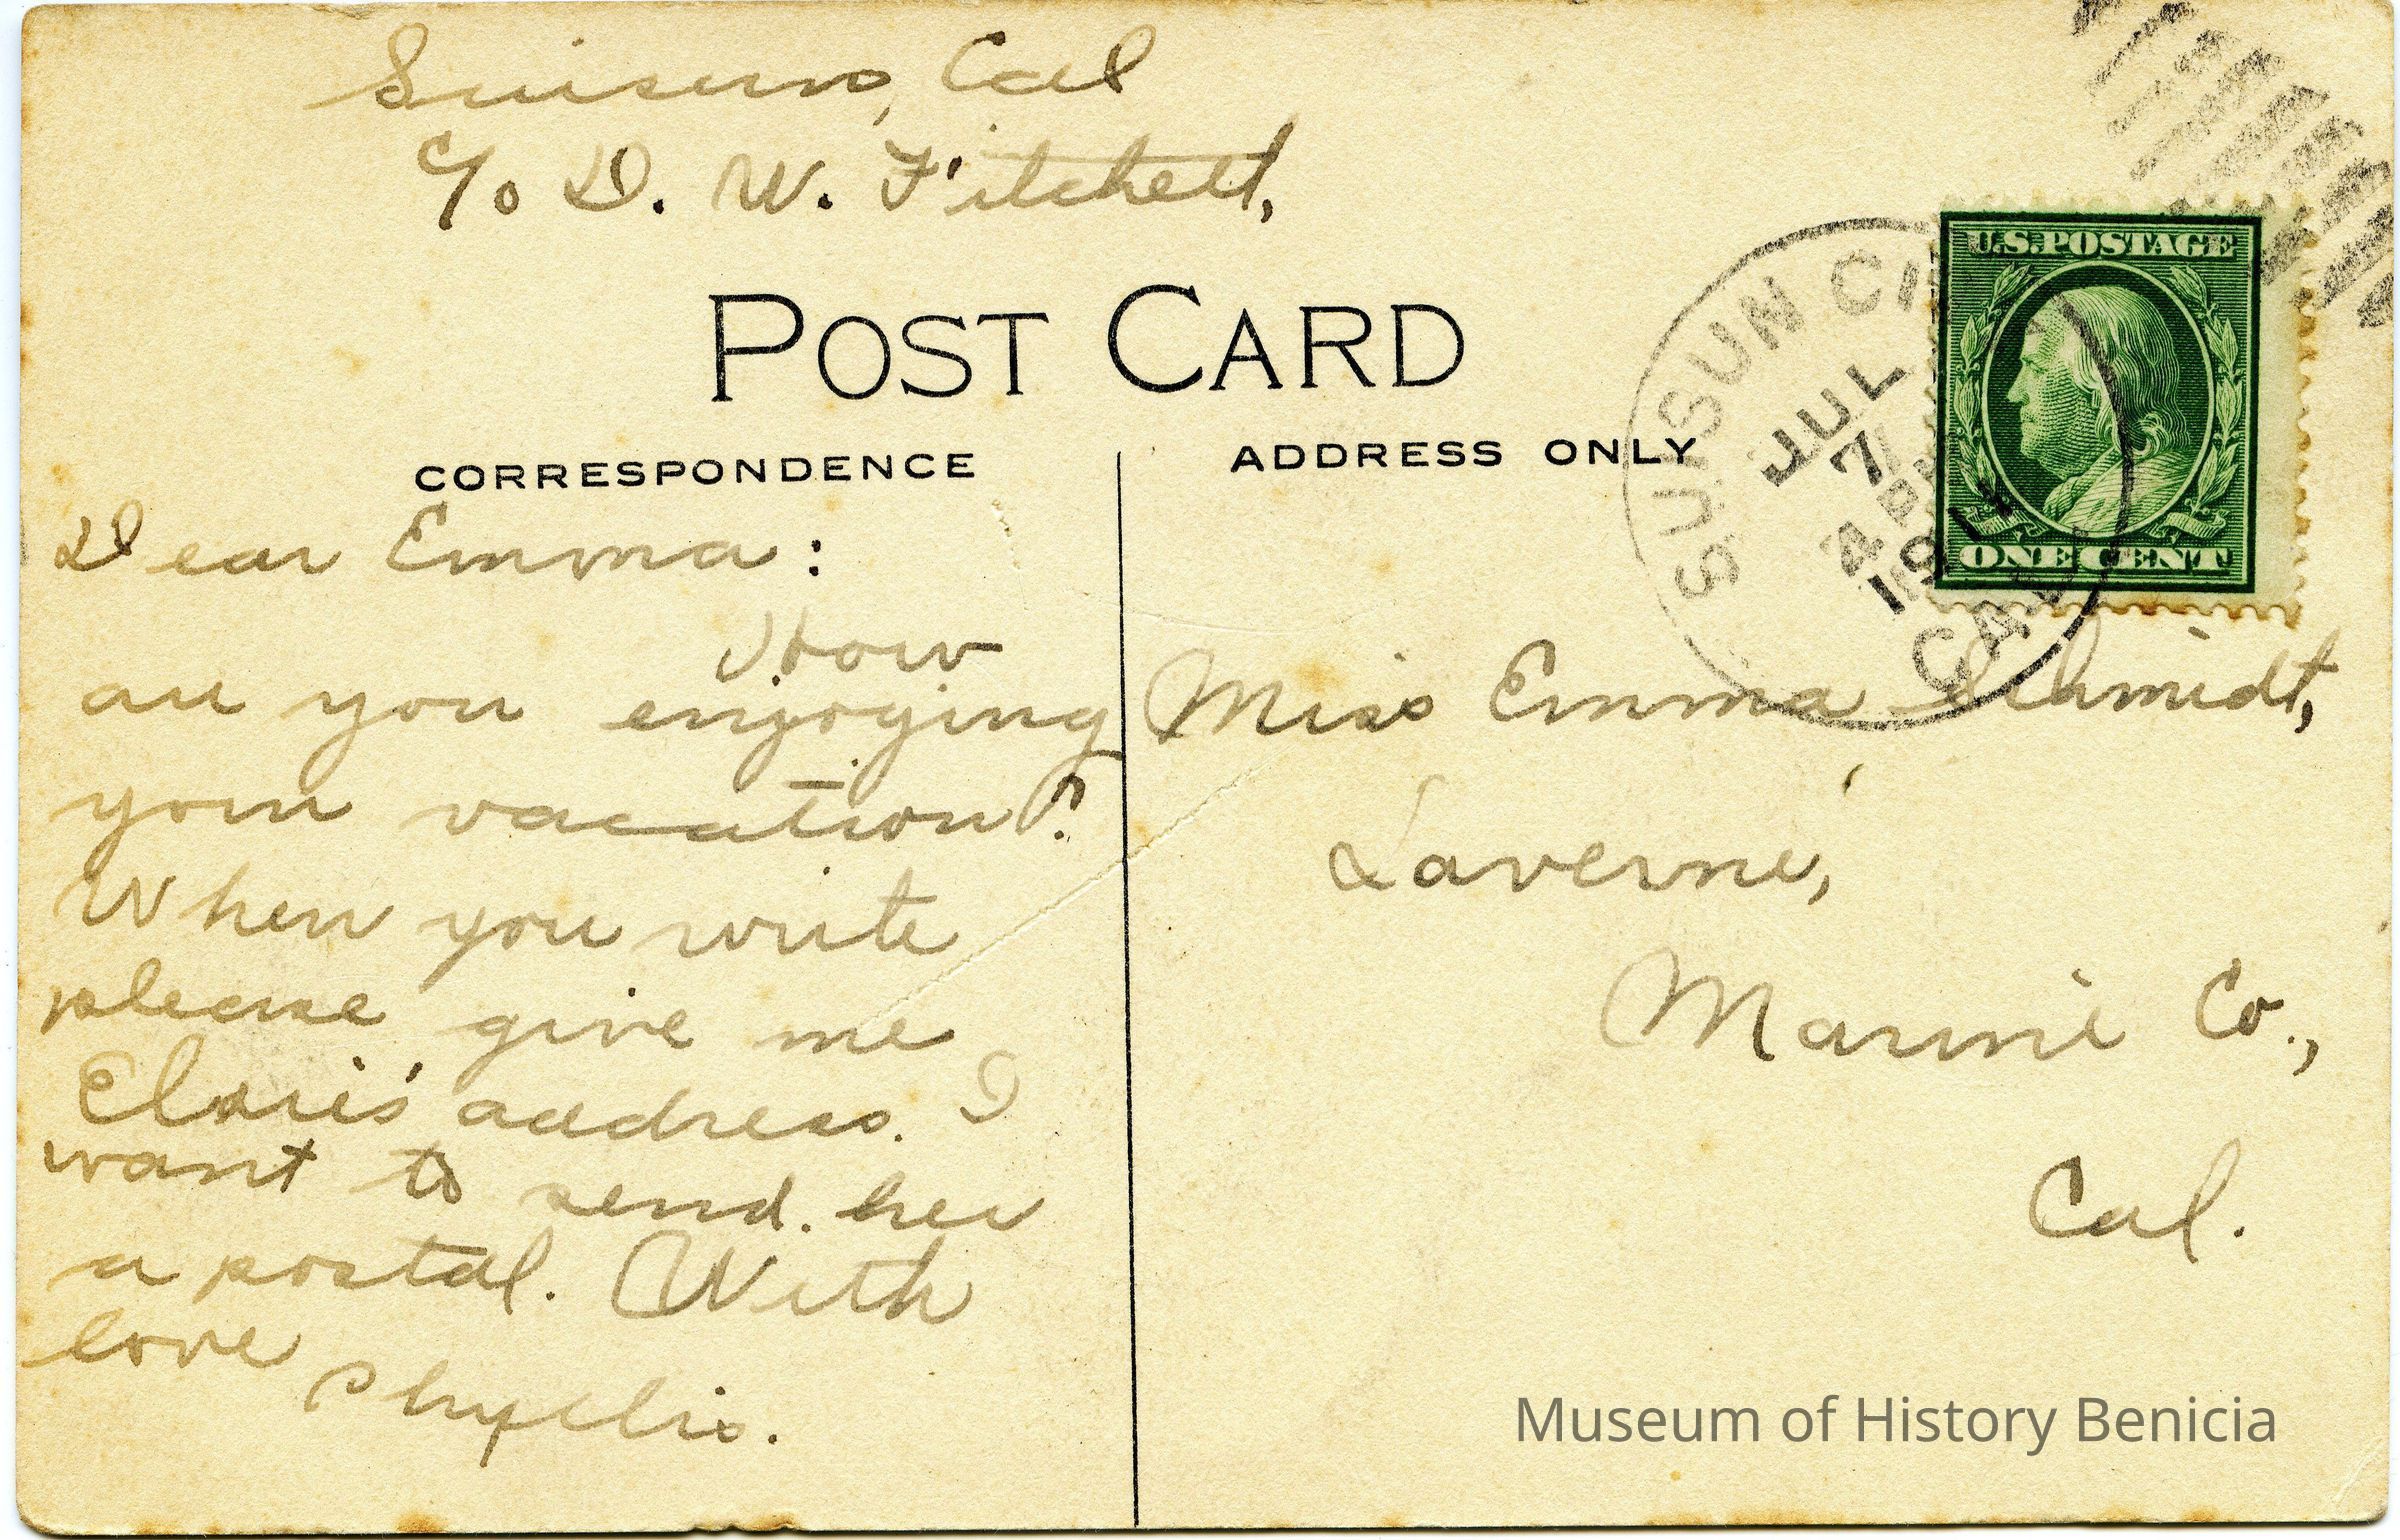 Suisun, Cal
c/o D. W. Fitchett,
POST CARD
CORRESPONDENCE
ADDRESS ONLY
SUISUN CITY
JUL
7
4 PM
191
CAL
U.S. POSTAGE
ONE CENT
Dear Emma:
How
are you enjoying
your vacation?
When you write
please give me
Elsie's address. I
want to send her
a postal. With
love
Phyllis.
Miss Emma Schmidt,
Laverne,
Marin Co.,
Cal.
Museum of History Benicia